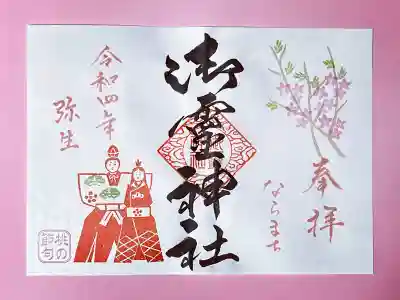 奉拝
ならまち
御霊神社
令和四年
弥生
桃の
節句